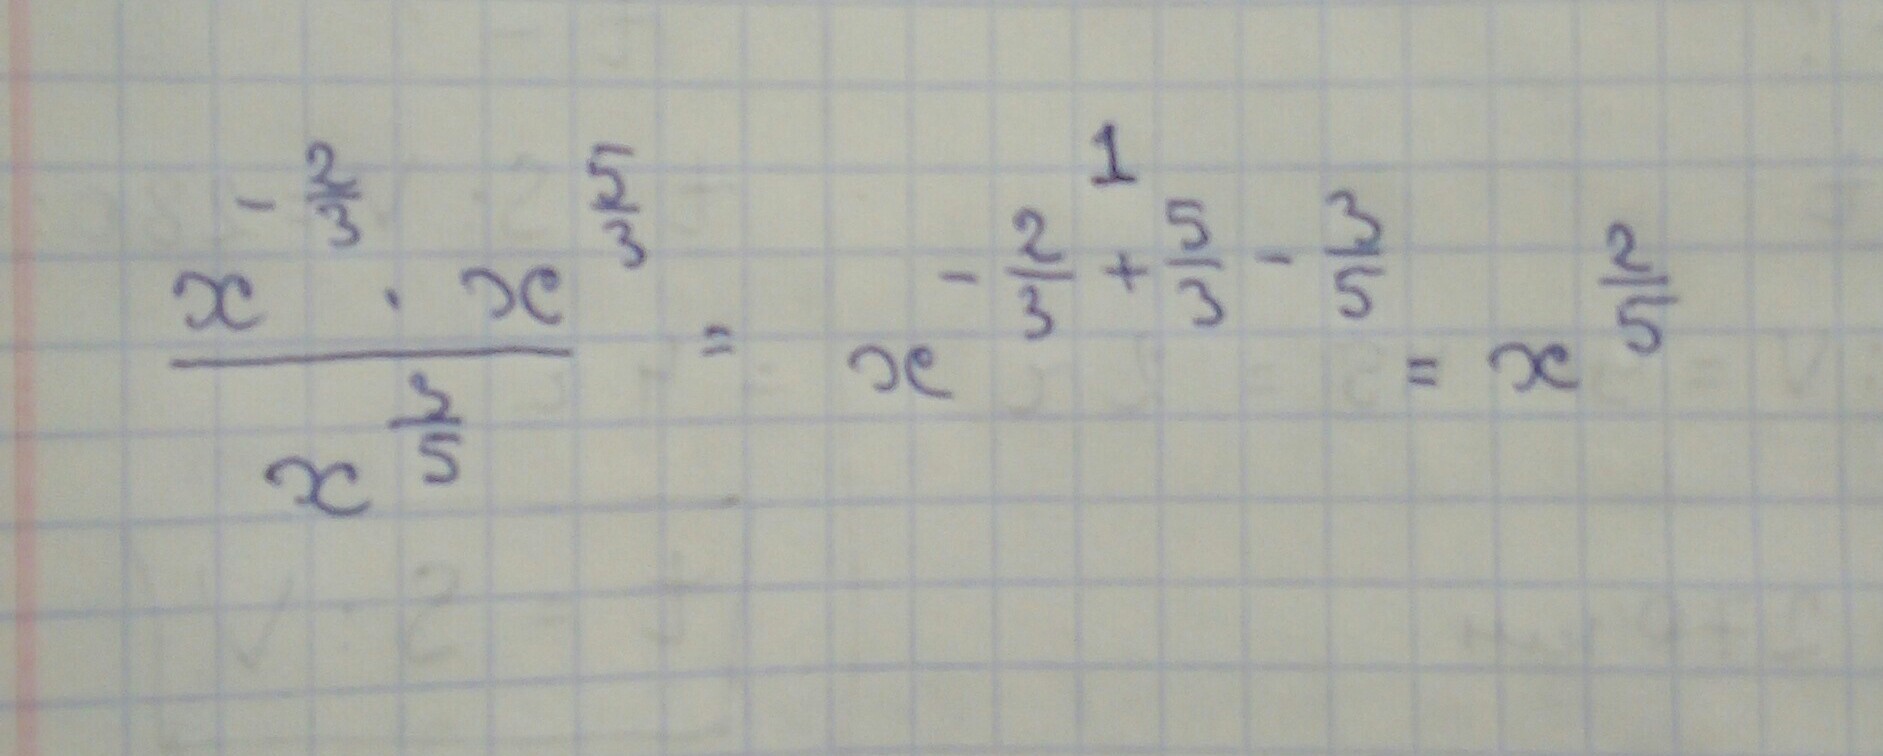 x^{-\frac{2}{3}} \cdot x^{\frac{5}{3}} / x^{\frac{3}{5}} = x^{-\frac{2}{3} + \frac{5}{3} - \frac{3}{5}} = x^{\frac{2}{5}}
1